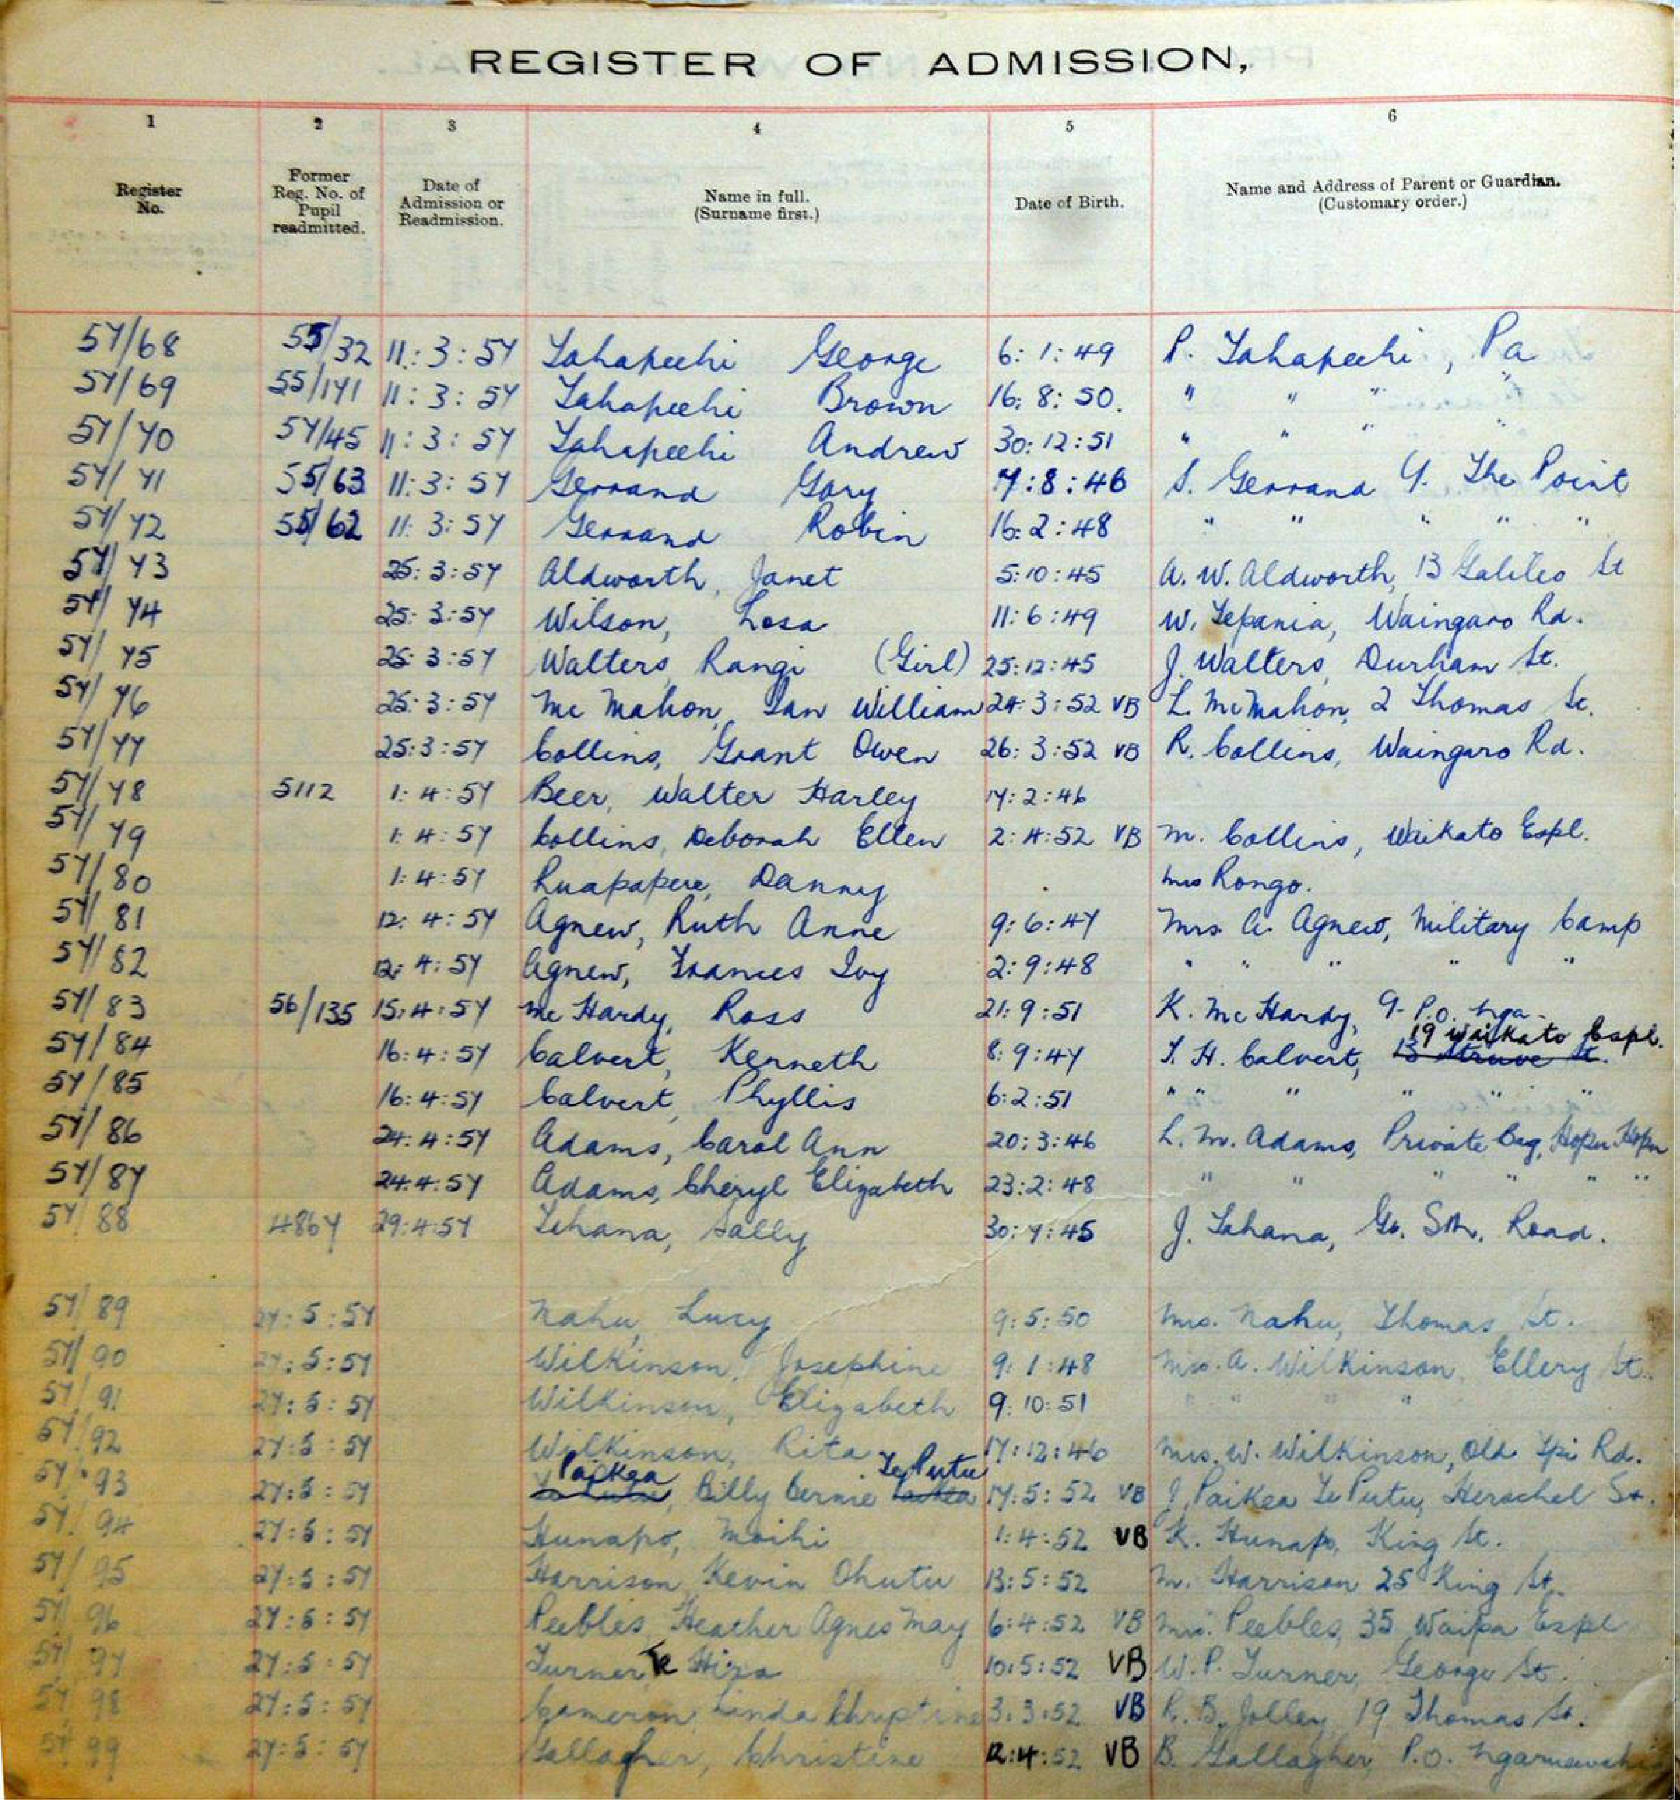 REGISTER OF ADMISSION,
1 2 3 4 5 6
Register No. Former Reg. No. of Pupil readmitted. Date of Admission or Readmission. Name in full. (Surname first.) Date of Birth. Name and Address of Parent or Guardian. (Customary order.)
57/68 55/32 11:3:57 Tahapeehi George 6:1:49 P. Tahapeehi, Pa
57/69 55/141 11:3:57 Tahapeehi Brown 16:8:50. " " " "
57/70 57/45 11:3:57 Tahapeehi Andrew 30:12:51 " " " "
57/71 55/63 11:3:57 Gerrand Gary 7:8:46 S. Gerrand 9. The Point
57/72 55/62 11:3:57 Gerrand Robin 16:2:48 " " " " "
57/73 25:3:57 Aldworth, Janet 5:10:45 A. W. Aldworth, 13 Galileo St
57/74 25:3:57 Wilson, Losa 11:6:49 W. Tepania, Waingaro Rd.
57/75 25:3:57 Walters, Rangi (Girl) 25:12:45 J. Walters, Durham St.
57/76 25:3:57 Mc Mahon, Ian William 24:3:52 VB L. McMahon, 2 Thomas St.
57/77 25:3:57 Collins, Grant Owen 26:3:52 VB R. Collins, Waingaro Rd.
57/78 5112 1:4:57 Beer, Walter Harley 17:2:46
57/79 1:4:57 Collins, Deborah Ellen 2:4:52 VB M. Collins, Waikato Espl.
57/80 1:4:57 Ruapapere, Danny Mrs Rongo.
57/81 12:4:57 Agnew, Ruth Anne 9:6:47 Mrs A. Agnew, Military Camp
57/82 12:4:57 Agnew, Frances Ivy 2:9:48 " " " " "
57/83 56/135 15:4:57 Mc Hardy, Ross 21:9:51 K. Mc Hardy, 9 P.O. Nga.
57/84 16:4:57 Calvert, Kenneth 8:9:47 T. H. Calvert, 13 Struve St. 19 Waikato Espl.
57/85 16:4:57 Calvert, Phyllis 6:2:51 " " " " " "
57/86 24:4:57 Adams, Carol Ann 20:3:46 L. M. Adams, Private Bag, Hopu Hopu
57/87 24:4:57 Adams, Cheryl Elizabeth 23:2:48 " " " " " "
57/88 4867 29:4:57 Tehana, Sally 30:7:45 J. Tahana, Gt. Sth. Road.
57/89 27:5:57 Nahu, Lucy 9:5:50 Mrs. Nahu, Thomas St.
57/90 27:5:57 Wilkinson, Josephine 9:1:48 Mrs. A. Wilkinson, Ellery St.
57/91 27:5:57 Wilkinson, Elizabeth 9:10:51 " " " "
57/92 27:5:57 Wilkinson, Rita 17:12:46 Mrs. W. Wilkinson, Old Tpi Rd.
Paikea Te Putu
57/93 27:5:57 Te Putu, Billy Bernie Paikea 17:5:52 VB J. Paikea Te Putu, Herschel St.
57/94 27:5:57 Hunapo, Moihi 1:4:52 VB K. Hunapo, King St.
57/95 27:5:57 Harrison Kevin Ohutu 13:5:52 M. Harrison 25 King St.
57/96 27:5:57 Peebles, Heather Agnes May 6:4:52 VB Mrs. Peebles, 35 Waipa Espl
57/97 27:5:57 Turner, Te Hira 10:5:52 VB W. P. Turner, George St.
57/98 27:5:57 Cameron, Linda Christine 3:3:52 VB R. B. Jolley, 19 Thomas St.
57/99 27:5:57 Gallagher, Christine 12:4:52 VB B. Gallagher, P.O. Ngaruawahia